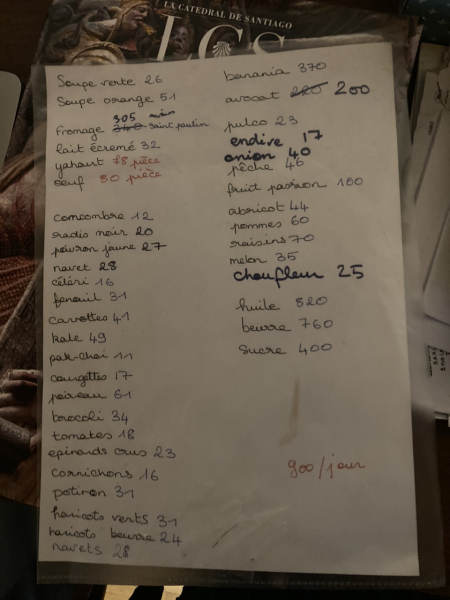 LA CATEDRAL DE SANTIAGO
Soupe verte 26
Soupe orange 51
305
fromage 340 Saint paulin
lait écremé 32
yahourt 78 pièce
oeuf 80 pièce
comcombre 12
radis noir 20
poivron jaune 27
navet 28
céléri 16
fenouil 31
carottes 41
kale 49
pak-choi 11
courgettes 17
poireau 61
brocoli 34
tomates 18
epinards crus 23
cornichons 16
potiron 31
haricots verts 31
haricots beurre 24
navets 28
banania 370
avocat 220 200
pulco 23
endive 17
onion 40
pêche 46
fruit passion 100
abricot 44
pommes 60
raisins 70
melon 35
choufleur 25
huile 820
beurre 760
sucre 400
900/jour